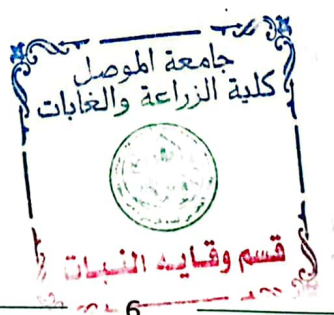 جامعة الموصل
كلية الزراعة والغابات
قسم وقايه النبات
6